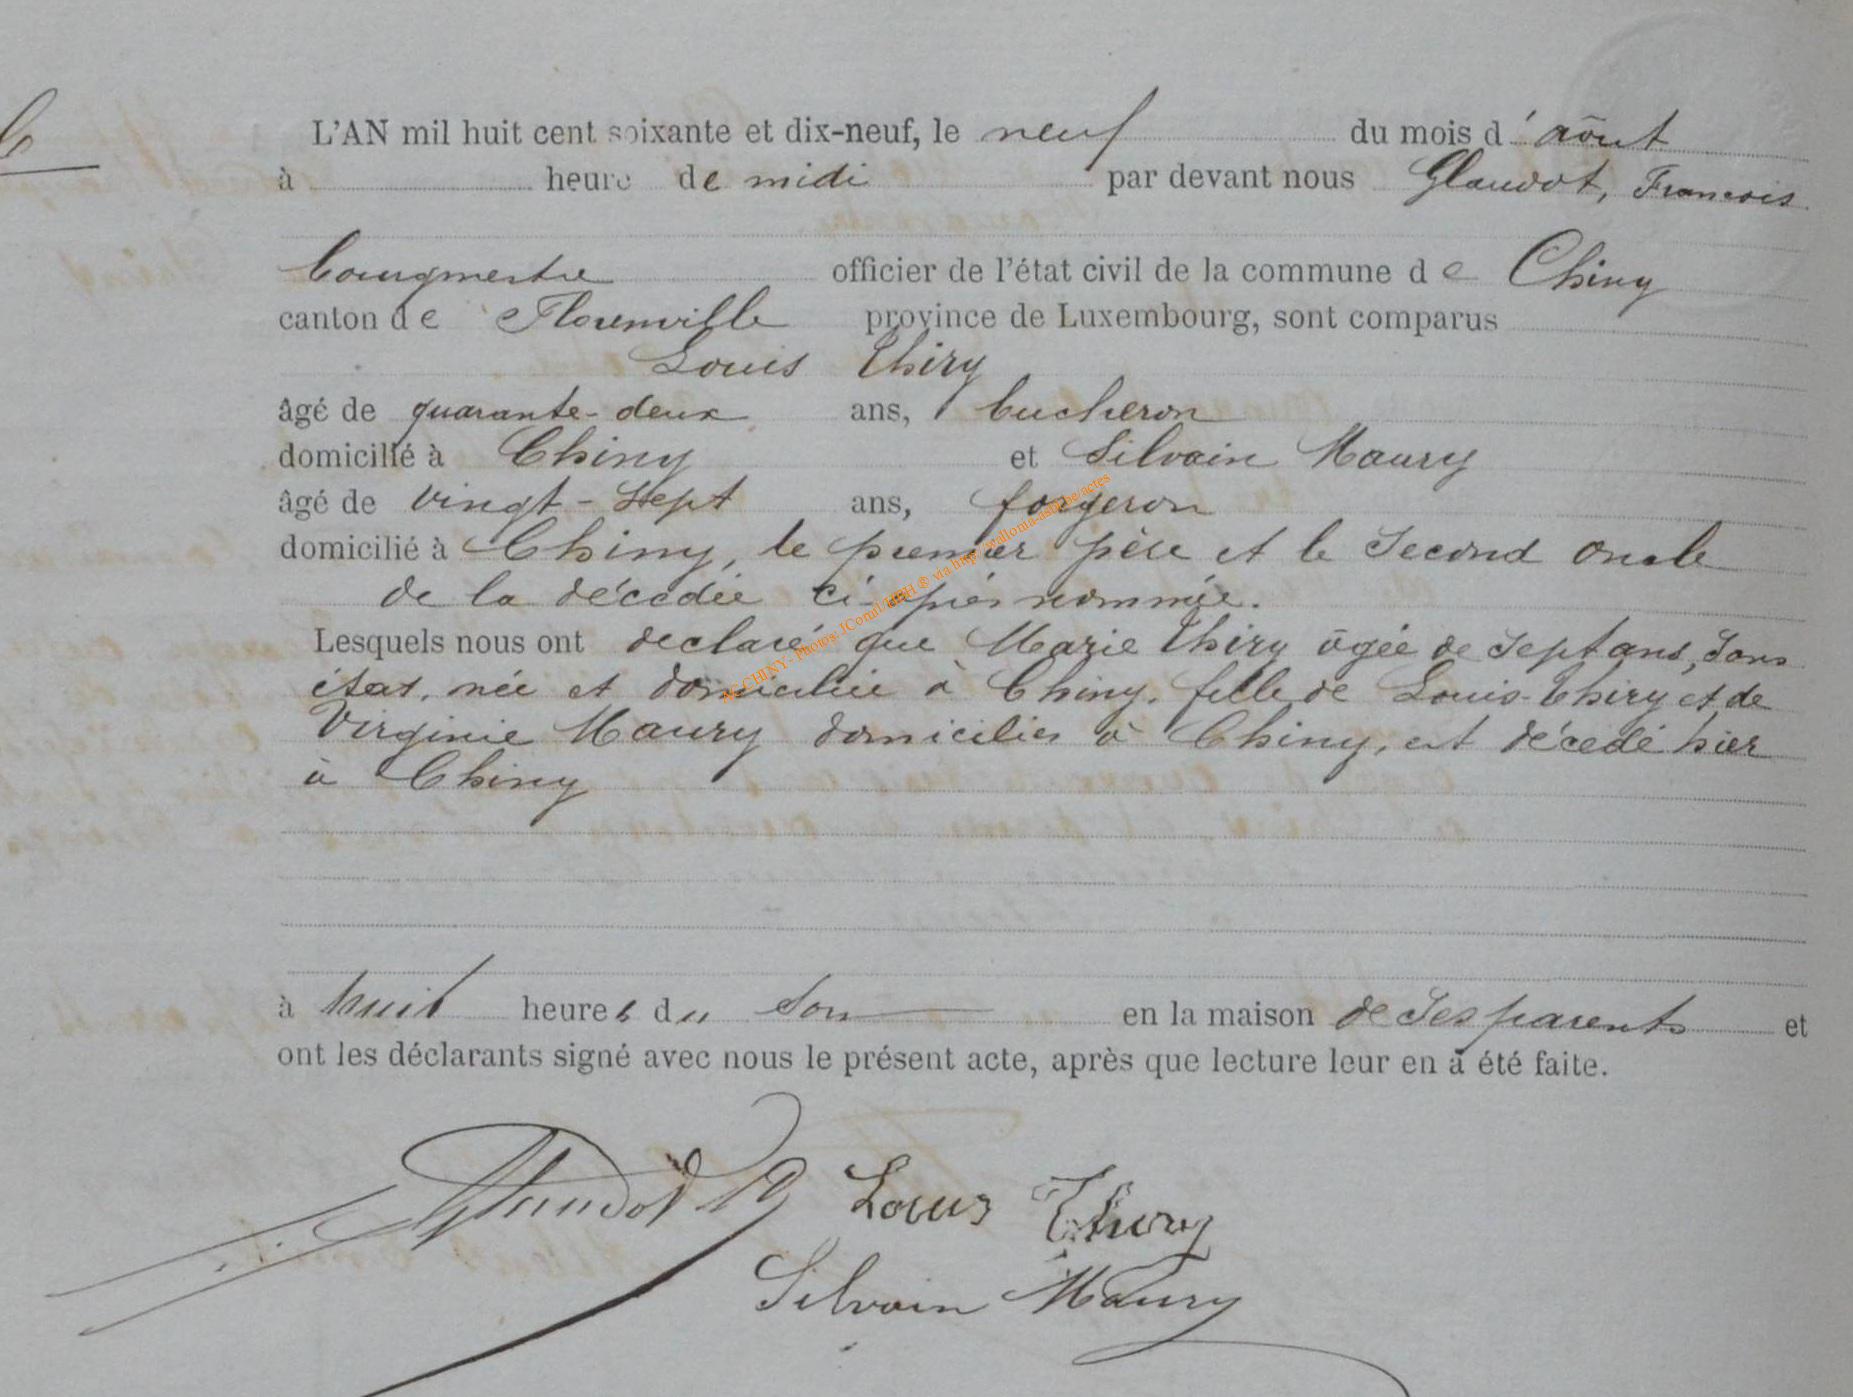 L'AN mil huit cent soixante et dix-neuf, le neuf du mois d'août
à heure de midi par devant nous Glaudot, François
bourgmestre officier de l'état civil de la commune de Chiny
canton de Florenville province de Luxembourg, sont comparus
Louis Thiry
âgé de quarante-deux ans, bucheron
domicilié à Chiny et Silvain Maury
âgé de vingt-sept ans, forgeron
domicilié à Chiny, le premier père et le second oncle
de la décedée ci-après nommée.
Lesquels nous ont declaré que Marie Thiry âgée de sept ans, sans
état, née et domiciliée à Chiny, fille de Louis Thiry et de
Virginie Maury domiciliés à Chiny, est décedé hier
à Chiny
à huit heures du soir en la maison de ses parents et
ont les déclarants signé avec nous le présent acte, après que lecture leur en a été faite.
Glaudot Louis Thiry
Silvain Maury
AC CHINY - Photos: JComil/HBH ® via http://wallonia-asbl.be/actes